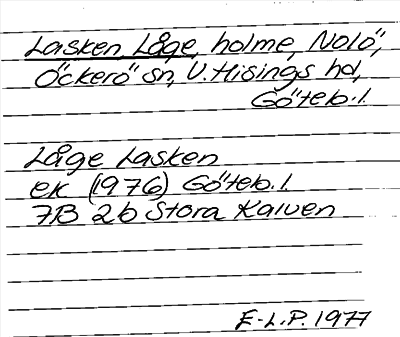 Lasken, Låge, holme, Nolö,
Öckerö sn, V. Hisings hd,
Göteb. l.
Låge Lasken
ek (1976) Göteb. l.
7B 2b Stora Kalven
E-L.P. 1977